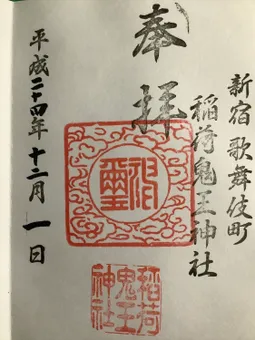 新宿歌舞伎町
稲荷鬼王神社
奉拝
平成二十四年十二月一日
稲荷
鬼王
神社